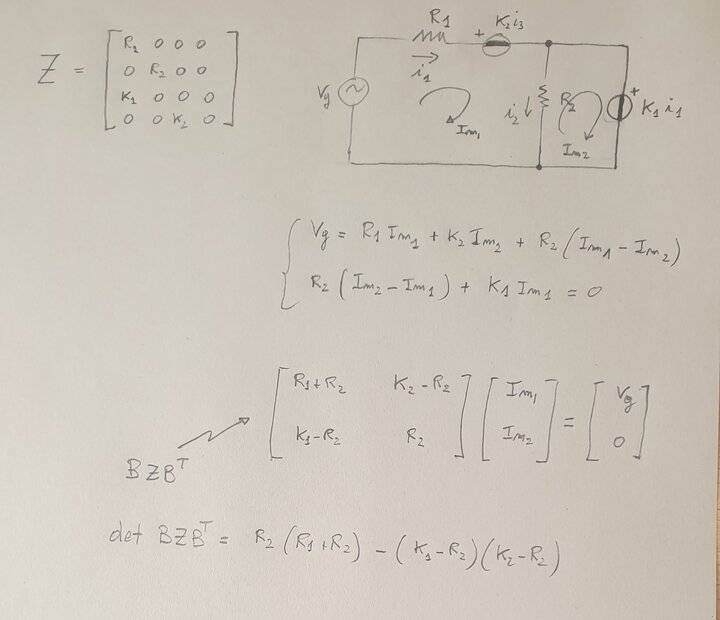 Z = [ R2 0 0 0
0 R2 0 0
K1 0 0 0
0 0 K2 0 ]
R1
+ K2 i3
i1
Vg
Im1
i2
R2
Im2
+ K1 i1
Vg = R1 Im1 + K2 Im2 + R2 (Im1 - Im2)
R2 (Im2 - Im1) + K1 Im1 = 0
[ R1+R2 K2-R2 ] [ Im1 ] = [ Vg ]
[ K1-R2 R2 ] [ Im2 ] [ 0 ]
BZB^T
det BZB^T = R2 (R1+R2) - (K1-R2)(K2-R2)